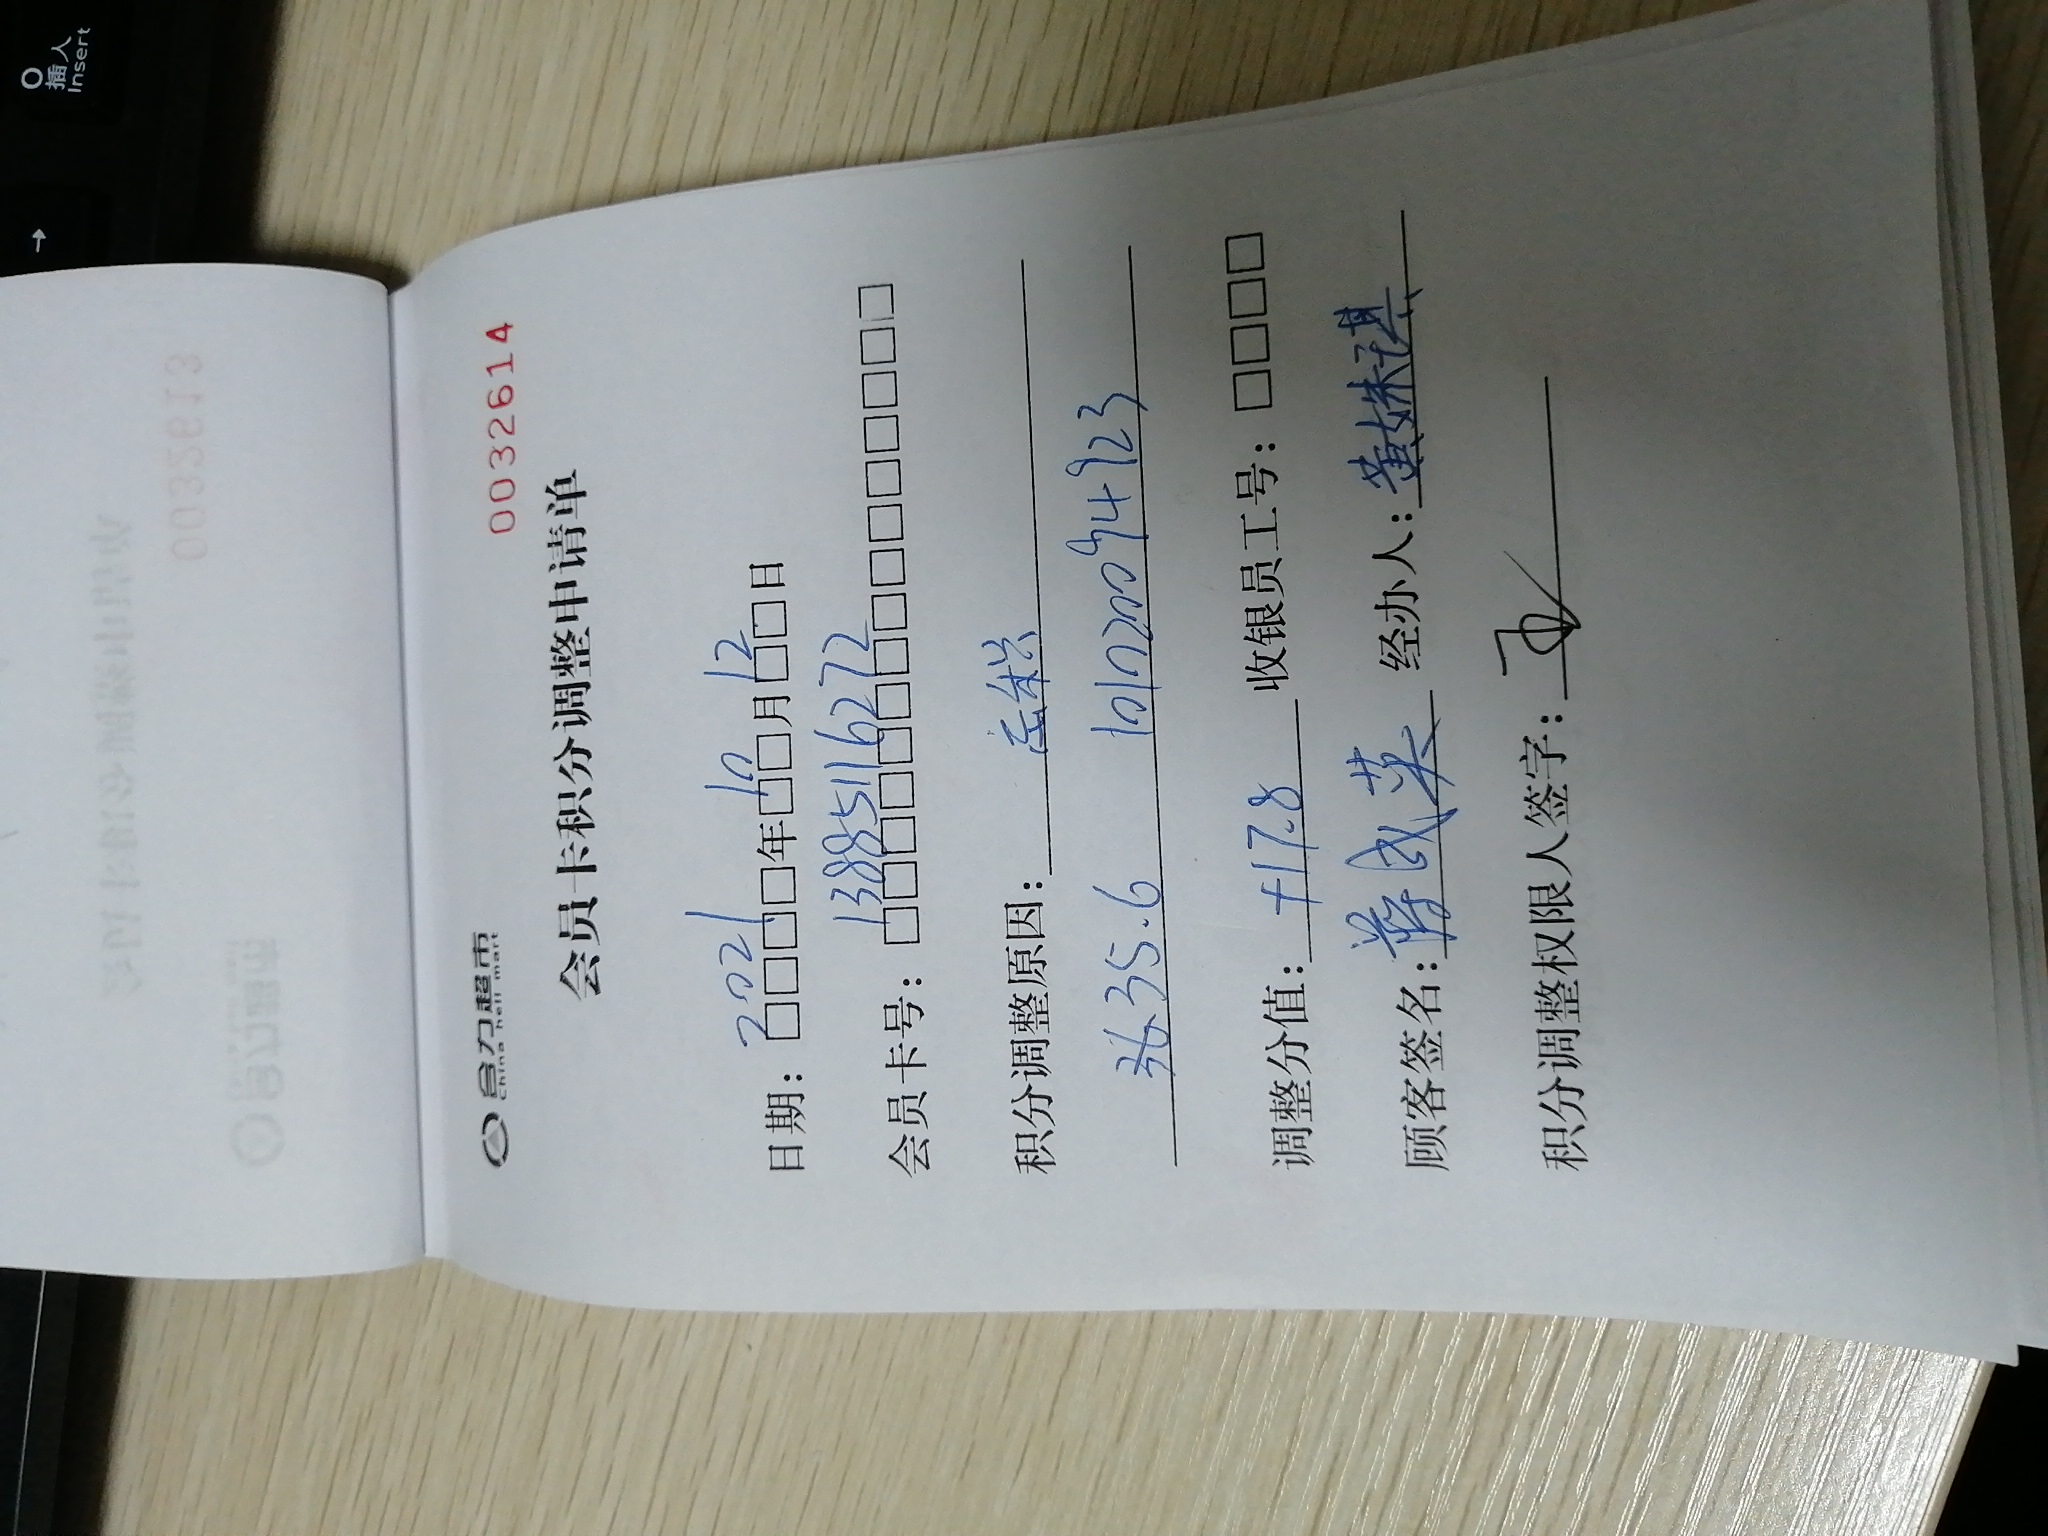 0032614
合力超市
china heli mart
会员卡积分调整申请单
日期：2021年10月12日
会员卡号：13885116272
积分调整原因：忘积
3635.6 1017200794923
调整分值：+17.8 收银员工号：
顾客签名：蒋成英 经办人：黄姝祺
积分调整权限人签字：
0032613
插入
Insert
→